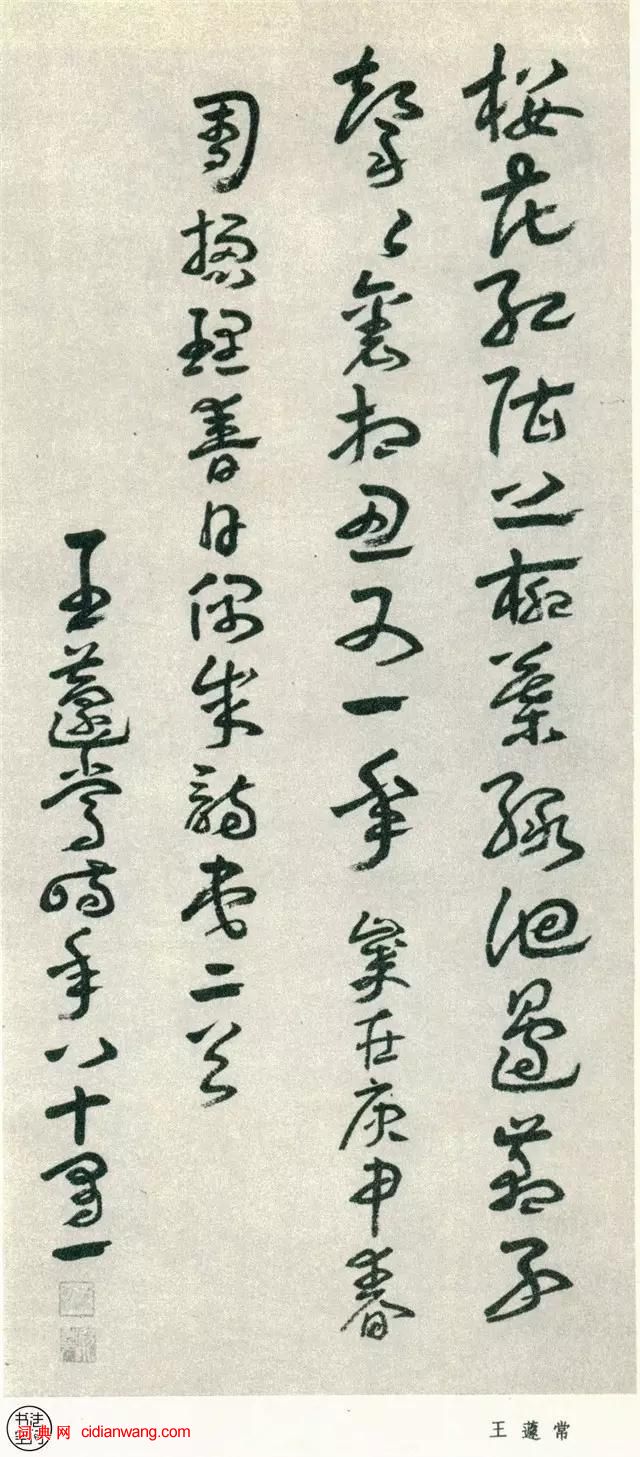 櫻花紅陌上柳葉綠池邊燕子
聲〻裏相思又一年 歲在庚申春
周摠理春日偶成詩弟二首
王蘧常時年八十有一
王蘧常
词典网 cidianwang.com